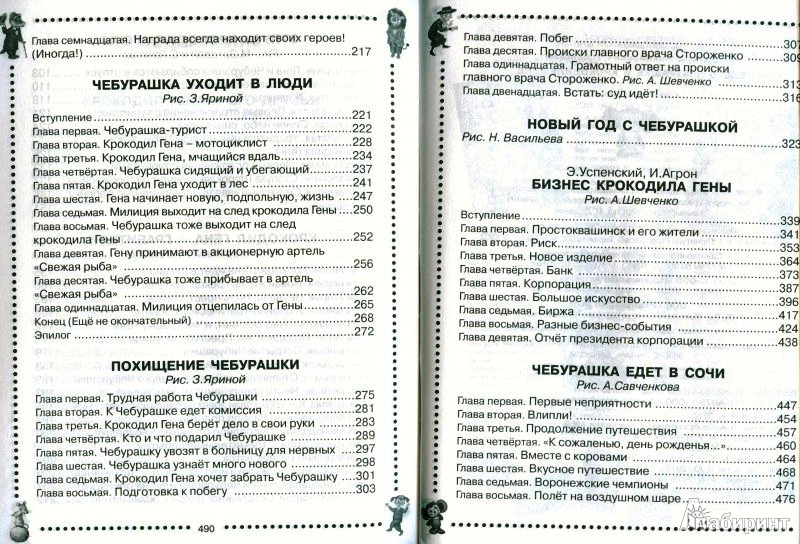 Глава семнадцатая. Награда всегда находит своих героев!
(Иногда!) 217
ЧЕБУРАШКА УХОДИТ В ЛЮДИ
Рис. З.Яриной
Вступление 221
Глава первая. Чебурашка-турист 222
Глава вторая. Крокодил Гена – мотоциклист 228
Глава третья. Крокодил Гена, мчащийся вдаль 234
Глава четвёртая. Чебурашка сидящий и убегающий 237
Глава пятая. Крокодил Гена уходит в лес 241
Глава шестая. Гена начинает новую, подпольную, жизнь 247
Глава седьмая. Милиция выходит на след крокодила Гены 250
Глава восьмая. Чебурашка тоже выходит на след
крокодила Гены 252
Глава девятая. Гену принимают в акционерную артель
«Свежая рыба» 256
Глава десятая. Чебурашка тоже прибывает в артель
«Свежая рыба» 262
Глава одиннадцатая. Милиция отцепилась от Гены 265
Конец (Ещё не окончательный) 268
Эпилог 272
ПОХИЩЕНИЕ ЧЕБУРАШКИ
Рис. З.Яриной
Глава первая. Трудная работа Чебурашки 275
Глава вторая. К Чебурашке едет комиссия 281
Глава третья. Крокодил Гена берёт дело в свои руки 283
Глава четвёртая. Кто и что подарил Чебурашке 289
Глава пятая. Чебурашку увозят в больницу для нервных 297
Глава шестая. Чебурашка узнаёт много нового 298
Глава седьмая. Крокодил Гена хочет забрать Чебурашку 301
Глава восьмая. Подготовка к побегу 303
490
Глава девятая. Побег 307
Глава десятая. Происки главного врача Стороженко 309
Глава одиннадцатая. Грамотный ответ на происки
главного врача Стороженко. Рис. А. Шевченко 313
Глава двенадцатая. Встать: суд идёт! 316
НОВЫЙ ГОД С ЧЕБУРАШКОЙ
Рис. Н. Васильева 323
Э.Успенский, И.Агрон
БИЗНЕС КРОКОДИЛА ГЕНЫ
Рис. А.Шевченко
Вступление 339
Глава первая. Простоквашинск и его жители 341
Глава вторая. Риск 353
Глава третья. Новое изделие 364
Глава четвёртая. Банк 373
Глава пятая. Корпорация 387
Глава шестая. Большое искусство 396
Глава седьмая. Биржа 417
Глава восьмая. Разные бизнес-события 424
Глава девятая. Отчёт президента корпорации 438
ЧЕБУРАШКА ЕДЕТ В СОЧИ
Рис. А.Савченкова
Глава первая. Первые неприятности 447
Глава вторая. Влипли! 454
Глава третья. Продолжение путешествия 457
Глава четвёртая. «К сожаленью, день рожденья...» 460
Глава пятая. Вместе с коровами 464
Глава шестая. Вкусное путешествие 468
Глава седьмая. Воронежские чемпионы 471
Глава восьмая. Полёт на воздушном шаре 476
Лабиринт